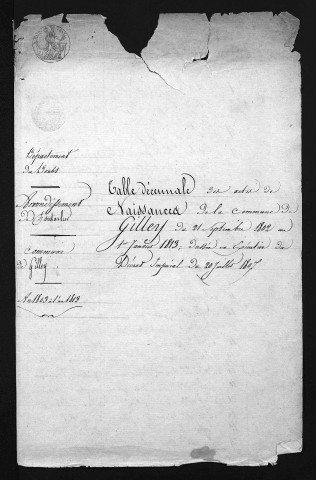 Département
du Doubs
Arrondissement
de Pontarlier
Commune
de Gilley
An 1803 et an 1813
Table décennale des actes de
Naissances de la commune de
Gilley du 21 Septembre 1802 au
1er Janvier 1813, dressée en Exécution du
Décret Impérial du 20 Juillet 1807